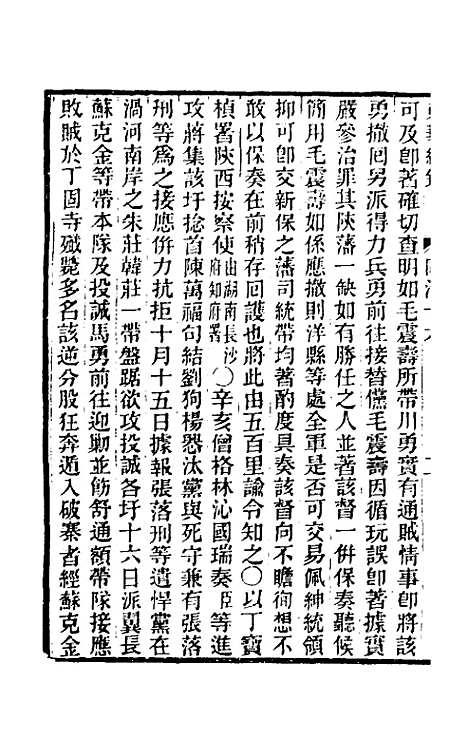 可及卽著確切查明如毛震壽所帶川勇實有通賊情事卽將該
勇撤囘另派得力兵勇前往接替儻毛震壽因循玩誤卽著據實
嚴參治罪其陝藩一缺如有勝任之人並著該督一倂保奏聽候
簡用毛震壽如係應撤則洋縣等處全軍是否可交易佩紳統領
抑可卽交新保之藩司統帶均著酌度具奏該督向不瞻徇想不
敢以保奏在前稍存回護也將此由五百里諭令知之〇以丁寶
楨署陝西按察使由湖南長沙府知府署〇辛亥僧格林沁國瑞奏臣等進
攻將集該圩捻首陳萬福句結劉狗楊恐汰黨與死守兼有張落
刑等爲之接應倂力抗拒十月十五日據報張落刑等遣悍黨在
渦河南岸之朱莊韓莊一帶盤踞欲攻投誠各圩十六日派翼長
蘇克金等帶本隊及投誠馬勇前往迎勦並飭舒通額帶隊接應
敗賊於丁固寺殲斃多名該逆分股狂奔遁入破寨者經蘇克金